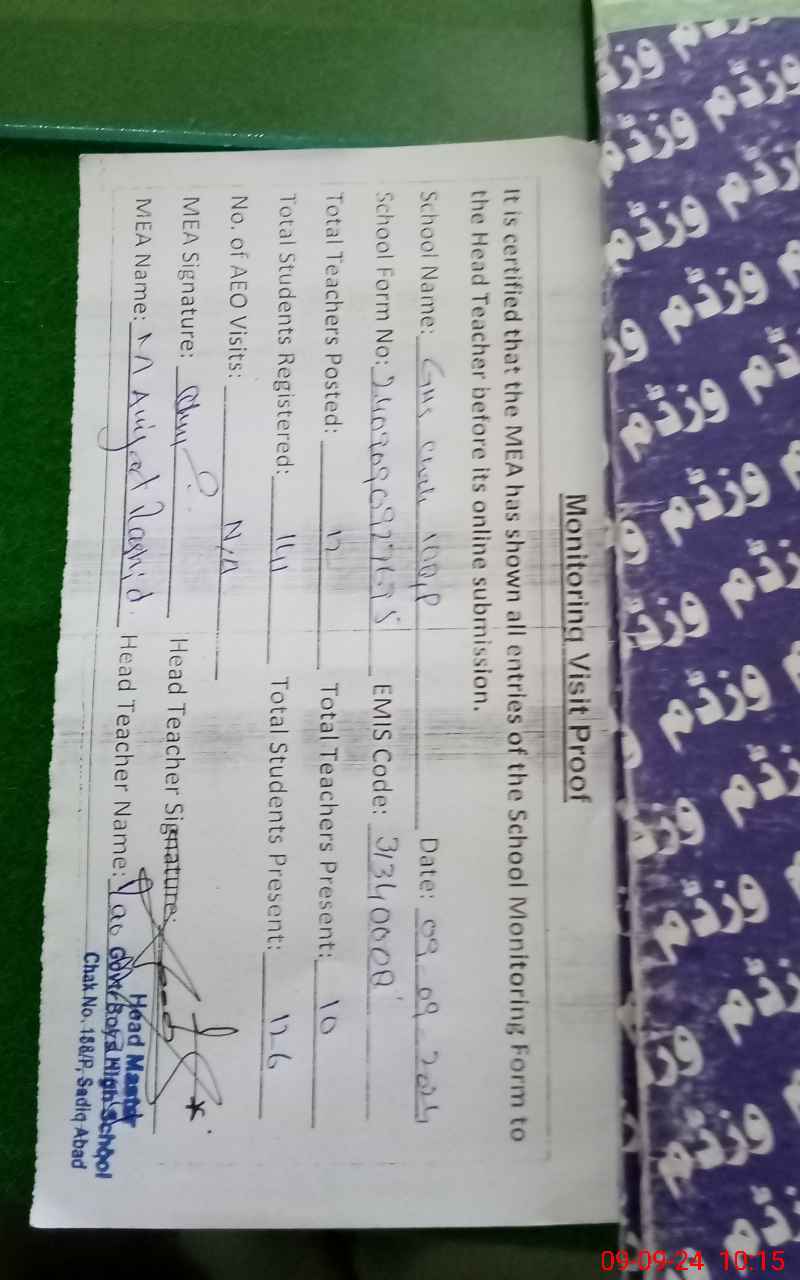 Monitoring Visit Proof
It is certified that the MEA has shown all entries of the School Monitoring Form to
the Head Teacher before its online submission.
School Name: GHS Chak Date: 09-09-2024
School Form No: EMIS Code: 31340008
Total Teachers Posted: 12 Total Teachers Present: 10
Total Students Registered: Total Students Present: 126
No. of AEO Visits: N/A
MEA Signature: Head Teacher Signature:
MEA Name: M Amjad Rashid Head Teacher Name:
Head Master
Govt: Boys High School
Chak No. 188/P, Sadiq Abad
وزڈم وزڈم
09-09-24 10:15